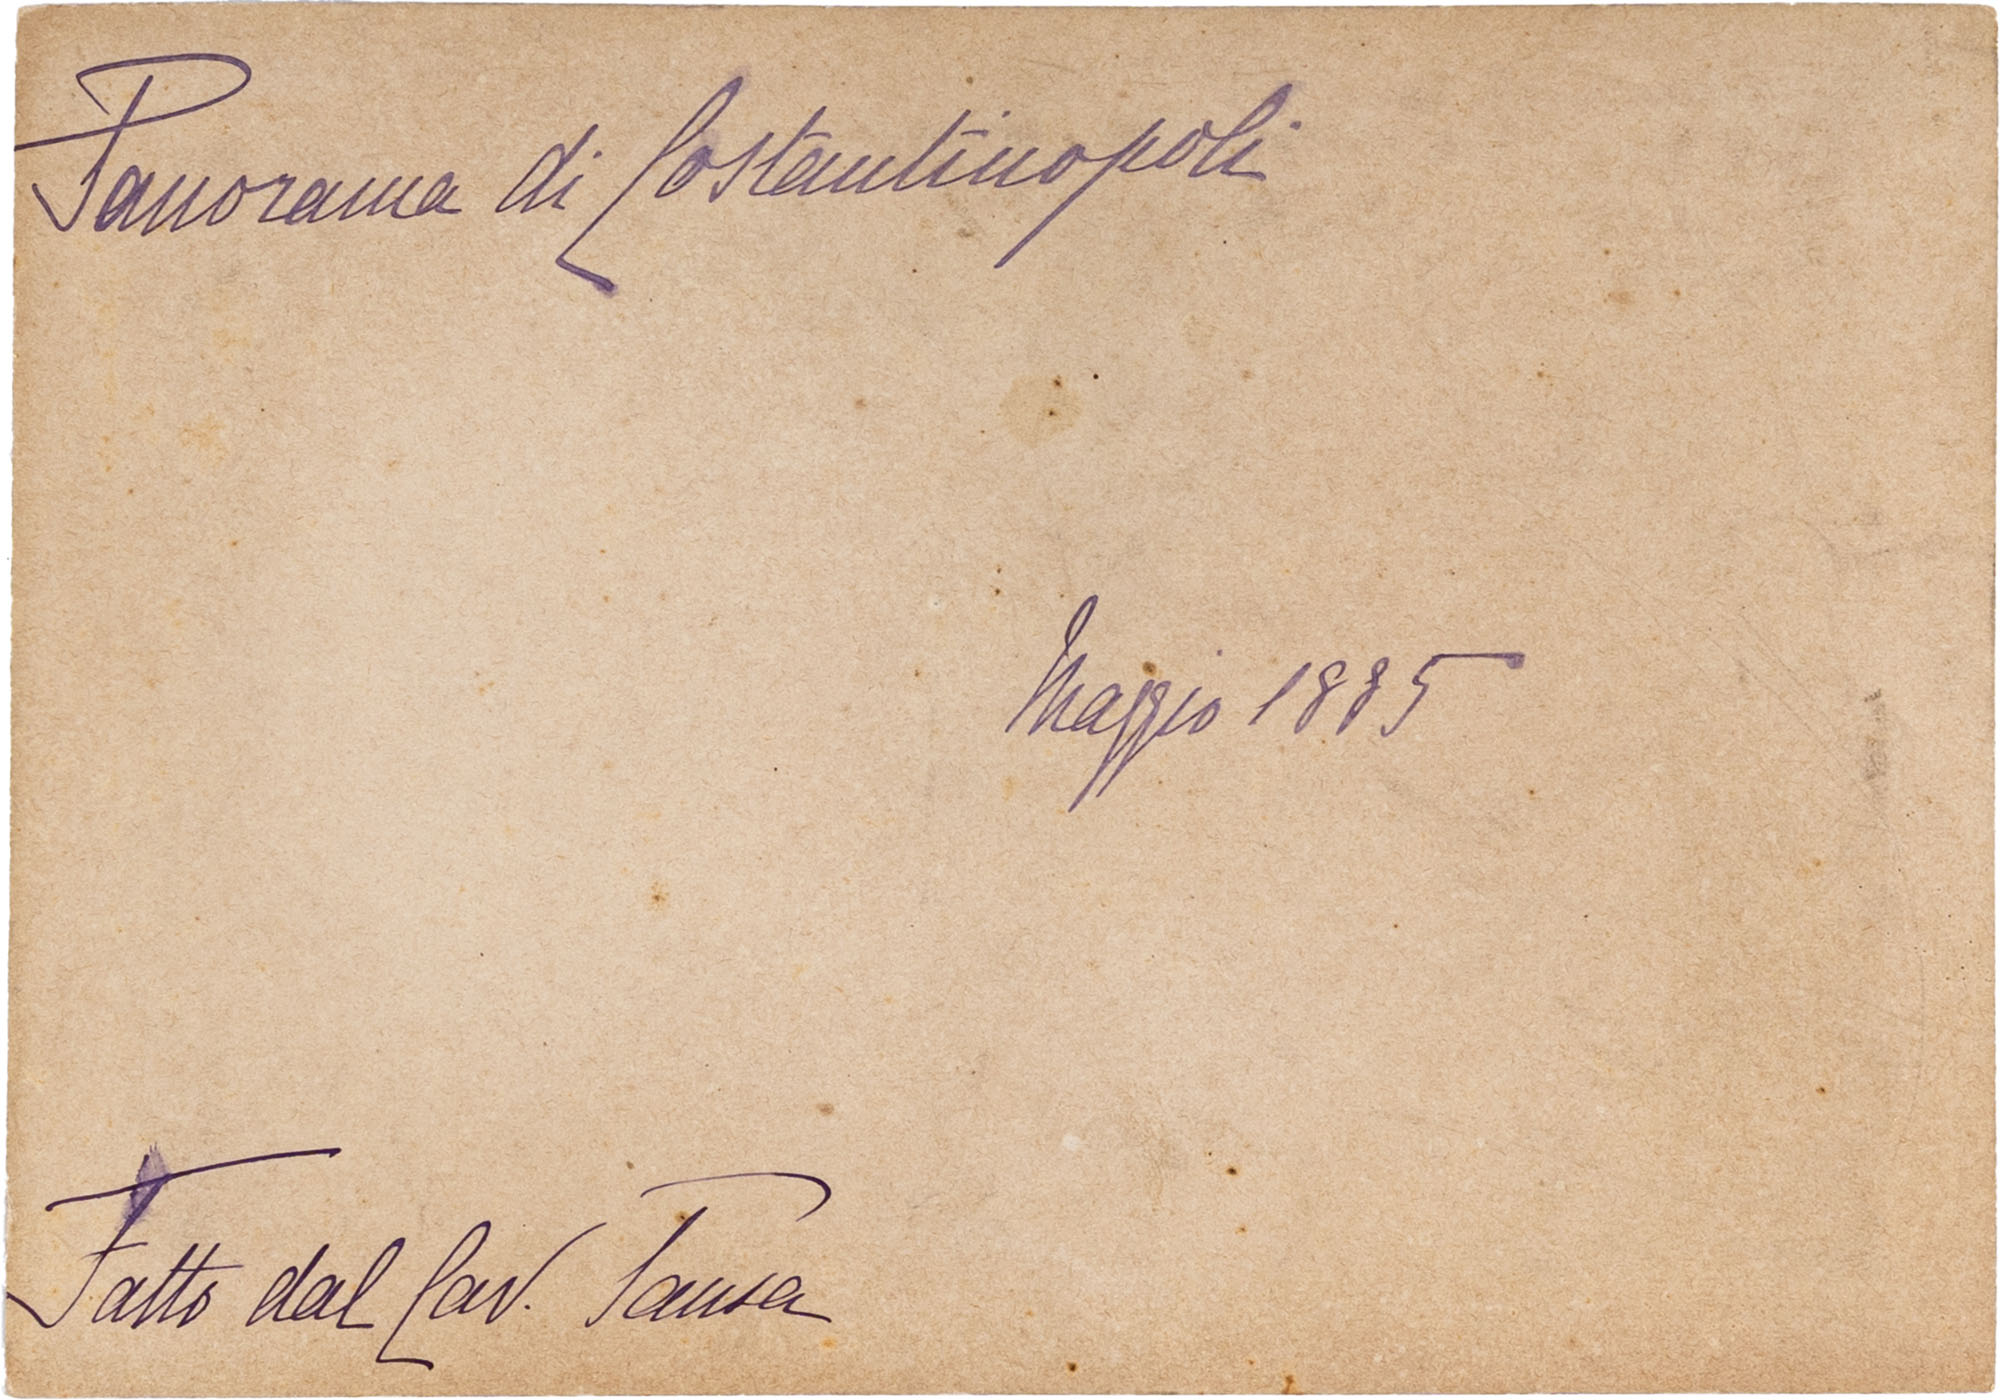 Panorama di Costantinopoli
Maggio 1885
Fatto dal Cav. Pansa